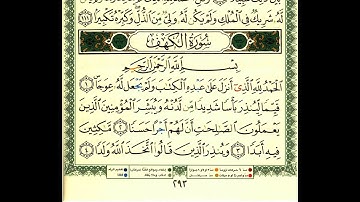 لَّهُۥ شَرِيكٌ فِى ٱلْمُلْكِ وَلَمْ يَكُن لَّهُۥ وَلِىٌّ مِّنَ ٱلذُّلِّ وَكَبِّرْهُ تَكْبِيرًۢا ١١١
سُورَةُ الكَهْفِ
بِسْمِ ٱللَّهِ ٱلرَّحْمَٰنِ ٱلرَّحِيمِ
ٱلْحَمْدُ لِلَّهِ ٱلَّذِىٓ أَنزَلَ عَلَىٰ عَبْدِهِ ٱلْكِتَٰبَ وَلَمْ يَجْعَل لَّهُۥ عِوَجَا ۜ ١
قَيِّمًا لِّيُنذِرَ بَأْسًا شَدِيدًا مِّن لَّدُنْهُ وَيُبَشِّرَ ٱلْمُؤْمِنِينَ ٱلَّذِينَ
يَعْمَلُونَ ٱلصَّٰلِحَٰتِ أَنَّ لَهُمْ أَجْرًا حَسَنًا ٢ مَّٰكِثِينَ
فِيهِ أَبَدًا ٣ وَيُنذِرَ ٱلَّذِينَ قَالُوا۟ ٱتَّخَذَ ٱللَّهُ وَلَدًا ٤
٢٩٣